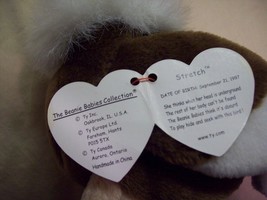 The Beanie Babies Collection®
© Ty Inc.
Oakbrook, IL, U.S.A.
© Ty Europe Ltd
Fareham, Hants
PO15 5TX
© Ty Canada
Aurora, Ontario
Handmade in China
Stretch™
DATE OF BIRTH: September 21, 1997
She thinks when her head is underground
The rest of her body can't be found
The Beanie Babies think it's absurd
To play hide and seek with this bird!
www.ty.com